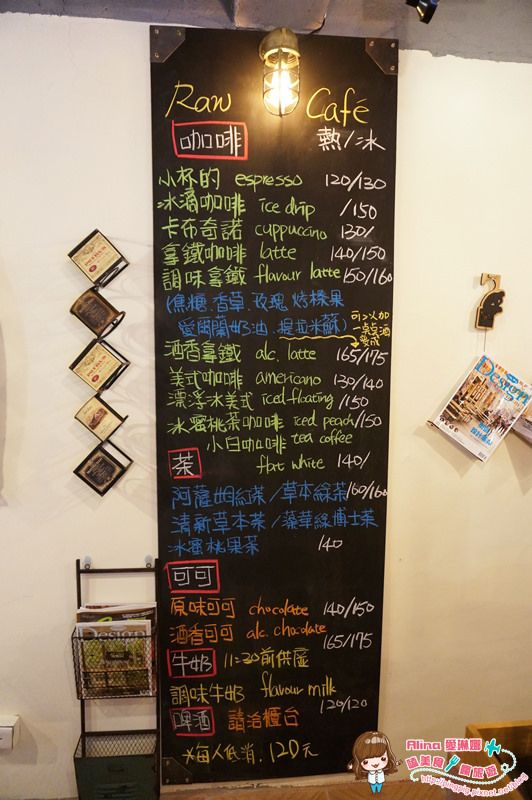 Raw Café
咖啡 熱/冰
小杯的 espresso 120/130
冰滴咖啡 ice drip /150
卡布奇諾 cuppuccino 130/
拿鐵咖啡 latte 140/150
調味拿鐵 flavour latte 150/160
(焦糖.香草.玫瑰.烤榛果
愛爾蘭奶油.提拉米蘇)
可以加一點酒變成
酒香拿鐵 alc. latte 165/175
美式咖啡 americano 130/140
漂浮冰美式 iced floating /150
冰蜜桃茶咖啡 iced peach /150
tea coffee
小白咖啡 flat white 140/
茶
阿薩姆紅茶/草本綠茶 160/160
清新草本茶/菁華綠博士茶
冰蜜桃果茶 140
可可
原味可可 chocolate 140/150
酒香可可 alc. chocolate 165/175
牛奶 11:30前供應
調味牛奶 flavour milk 120/120
啤酒 請洽櫃台
*每人低消.120元
Design
Design
Alina 愛琳娜
萌美食 實旅遊